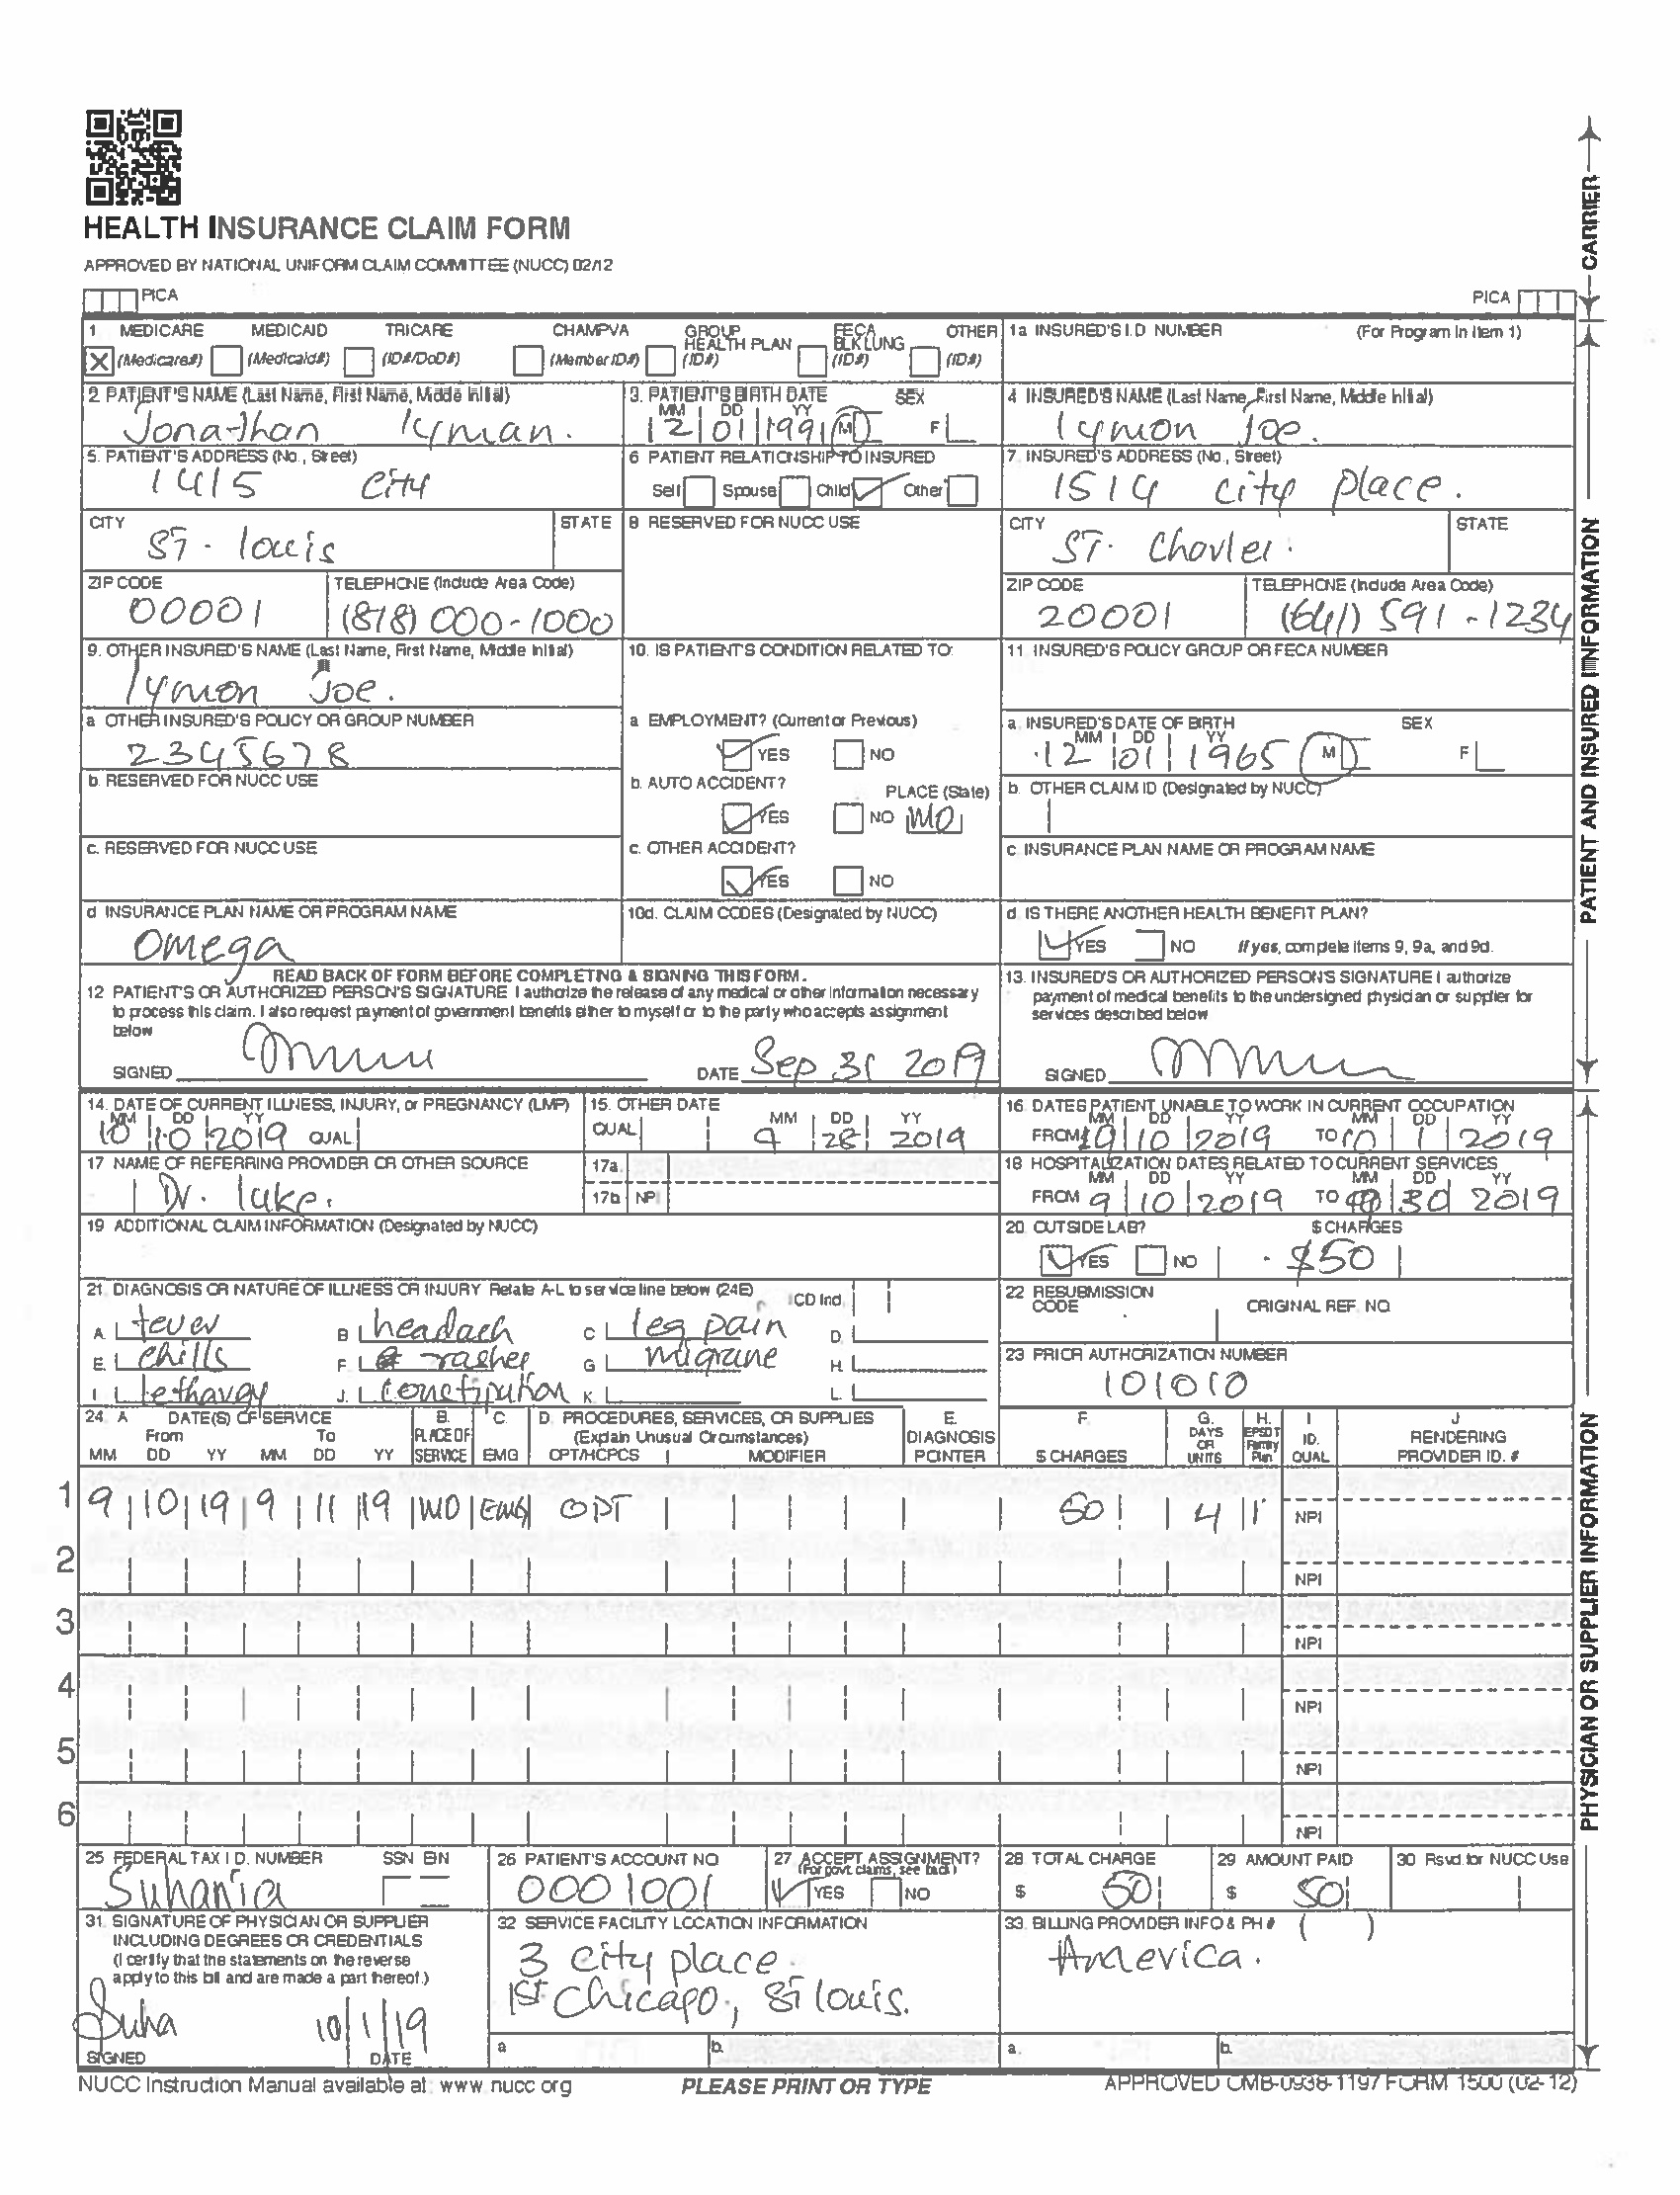 HEALTH INSURANCE CLAIM FORM
APPROVED BY NATIONAL UNIFORM CLAIM COMMITTEE (NUCC) 02/12
PICA
PICA
CARRIER
1. MEDICARE MEDICAID TRICARE CHAMPVA GROUP HEALTH PLAN FECA BLK LUNG OTHER
X (Medicare#) (Medicaid#) (ID#/DoD#) (Member ID#) (ID#) (ID#) (ID#)
1a INSURED'S I.D NUMBER (For Program in Item 1)
2 PATIENT'S NAME (Last Name, First Name, Middle Initial)
Jonathan lyman.
3. PATIENT'S BIRTH DATE SEX
MM DD YY
12 01 1991 M F
4 INSURED'S NAME (Last Name, First Name, Middle Initial)
lymon Joe.
5. PATIENT'S ADDRESS (No., Street)
1415 City
6 PATIENT RELATIONSHIP TO INSURED
Self Spouse Child Other
7. INSURED'S ADDRESS (No., Street)
1514 city place.
CITY STATE
ST. louis
8 RESERVED FOR NUCC USE
CITY STATE
ST. Charles.
ZIP CODE TELEPHONE (Include Area Code)
00001 (818) 000-1000
ZIP CODE TELEPHONE (Include Area Code)
20001 (641) 591-1234
9. OTHER INSURED'S NAME (Last Name, First Name, Middle Initial)
lymon Joe.
10. IS PATIENT'S CONDITION RELATED TO:
11. INSURED'S POLICY GROUP OR FECA NUMBER
a OTHER INSURED'S POLICY OR GROUP NUMBER
2345678
a EMPLOYMENT? (Current or Previous)
YES NO
a. INSURED'S DATE OF BIRTH SEX
MM DD YY
12 01 1965 M F
b. RESERVED FOR NUCC USE
b. AUTO ACCIDENT? PLACE (State)
YES NO MO
b. OTHER CLAIM ID (Designated by NUCC)
c. RESERVED FOR NUCC USE
c. OTHER ACCIDENT?
YES NO
c INSURANCE PLAN NAME OR PROGRAM NAME
d INSURANCE PLAN NAME OR PROGRAM NAME
Omega
10d. CLAIM CODES (Designated by NUCC)
d. IS THERE ANOTHER HEALTH BENEFIT PLAN?
YES NO If yes, complete items 9, 9a, and 9d.
READ BACK OF FORM BEFORE COMPLETING & SIGNING THIS FORM.
12 PATIENT'S OR AUTHORIZED PERSON'S SIGNATURE I authorize the release of any medical or other information necessary
to process this claim. I also request payment of government benefits either to myself or to the party who accepts assignment
below
SIGNED DATE Sep 31 2019
13. INSURED'S OR AUTHORIZED PERSON'S SIGNATURE I authorize
payment of medical benefits to the undersigned physician or supplier for
services described below
SIGNED
PATIENT AND INSURED INFORMATION
14. DATE OF CURRENT ILLNESS, INJURY, or PREGNANCY (LMP)
MM DD YY
10 10 2019 QUAL
15. OTHER DATE
QUAL MM DD YY
9 28 2019
16. DATES PATIENT UNABLE TO WORK IN CURRENT OCCUPATION
MM DD YY MM DD YY
FROM 10 2019 TO 10 1 2019
17 NAME OF REFERRING PROVIDER OR OTHER SOURCE
Dr. luke.
17a.
17b NPI
18 HOSPITALIZATION DATES RELATED TO CURRENT SERVICES
MM DD YY MM DD YY
FROM 9 10 2019 TO 30 2019
19 ADDITIONAL CLAIM INFORMATION (Designated by NUCC)
20. OUTSIDE LAB? $ CHARGES
YES NO $50
21. DIAGNOSIS OR NATURE OF ILLNESS OR INJURY Relate A-L to service line below (24E) ICD Ind.
A. fever B headach C leg pain D.
E. chills F. rashes G migrane H.
I. lethargy J. constipution K. L.
22 RESUBMISSION CODE ORIGINAL REF. NO.
23 PRIOR AUTHORIZATION NUMBER
101010
24. A DATE(S) OF SERVICE B. C. D. PROCEDURES, SERVICES, OR SUPPLIES E. F. G. H. I J
From To PLACE OF (Explain Unusual Circumstances) DIAGNOSIS DAYS OR UNITS EPSDT Family Plan ID. RENDERING
MM DD YY MM DD YY SERVICE EMG CPT/HCPCS MODIFIER POINTER $ CHARGES QUAL PROVIDER ID. #
1 9 10 19 9 11 19 MO EMG OPT 50 4 1 NPI
2 NPI
3 NPI
4 NPI
5 NPI
6 NPI
25 FEDERAL TAX I D. NUMBER SSN EIN
Suhania
26 PATIENT'S ACCOUNT NO
0001001
27. ACCEPT ASSIGNMENT?
(For govt. claims, see back)
YES NO
28 TOTAL CHARGE
$ 50
29 AMOUNT PAID
$ 50
30 Rsvd. for NUCC Use
31. SIGNATURE OF PHYSICIAN OR SUPPLIER
INCLUDING DEGREES OR CREDENTIALS
(I certify that the statements on the reverse
apply to this bill and are made a part thereof.)
Suha 10/1/19
SIGNED DATE
32 SERVICE FACILITY LOCATION INFORMATION
3 city place
1st Chicago, St louis.
a b.
33. BILLING PROVIDER INFO & PH # ( )
America.
a. b.
PHYSICIAN OR SUPPLIER INFORMATION
NUCC Instruction Manual available at: www.nucc.org
PLEASE PRINT OR TYPE
APPROVED OMB-0938-1197 FORM 1500 (02-12)